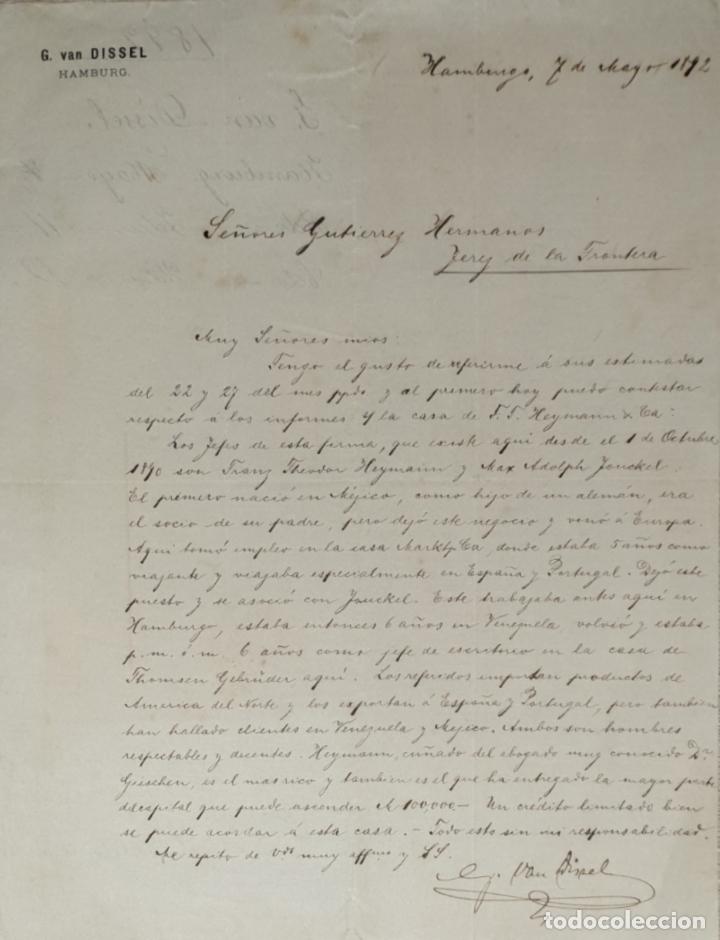 G. van DISSEL
HAMBURG.
Hamburgo, 7 de Mayo 1892
Señores Gutierrez Hermanos
Jerez de la Frontera
Muy Señores mios:
Tengo el gusto de referirme á sus estimadas
del 22 y 27 del mes ppdo y al primero hoy puedo contestar
respecto á los informes s/ la casa de F. T. Heymann & Ca:
Los Jefes de esta firma, que existe aqui desde el 1 de Octubre
1890 son Franz Theodor Heymann y Max Adolph Jouckel.
El primero nació en Méjico, como hijo de un alemán, era
el socio de su padre, pero dejó este negocio y vinó á Europa.
Aqui tomó empleo en la casa Markt & Ca, donde estaba 5 años como
viajante y viajaba especialmente en España y Portugal. Dejó este
puesto y se asoció con Jouckel. Este trabajaba antes aqui en
Hamburgo, estaba entonces 6 años en Venezuela, volvió y estaba
p. m. ó. m. 6 años como jefe de escritorio en la casa de
Thomsen Gebrüder aqui. Los referidos importan productos de
America del Norte y los exportan á España y Portugal, pero tambien
han hallado clientes en Venezuela y Mejico. Ambos son hombres
respectables y decentes. Heymann, cuñado del abogado muy conocido Dr
Gieschen, es el mas rico y tambien es el que ha entregado la mayor parte
del capital que puede ascender M 100,000.— Un crédito limitado bien
se puede acordar á esta casa. — Todo esto sin mi responsabilidad.
Me repito de Vds muy affmo y SS.
G. van Dissel
1892
G. van Dissel.
Hamburg Mayo 7
todocoleccion